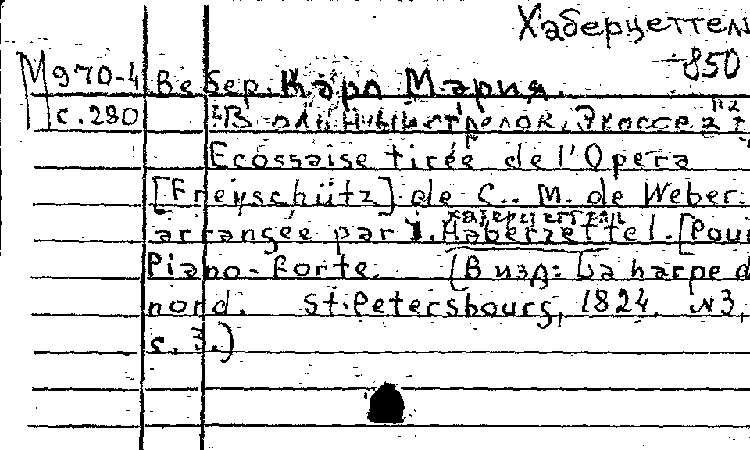 Хаберцеттель
850
М970-4 Вебер, Карл Мария.
с.280 [Вольный стрелок. Экоссез]
Ecossaise tirée de l'Opera
[Freyschütz] de C. M. de Weber.
Хаберцеттель
arrangée par I. Haberzettel. [Pour
Piano-forte. (В изд: La harpe d
nord. St. Petersbourg, 1824. N3,
с. 3.)